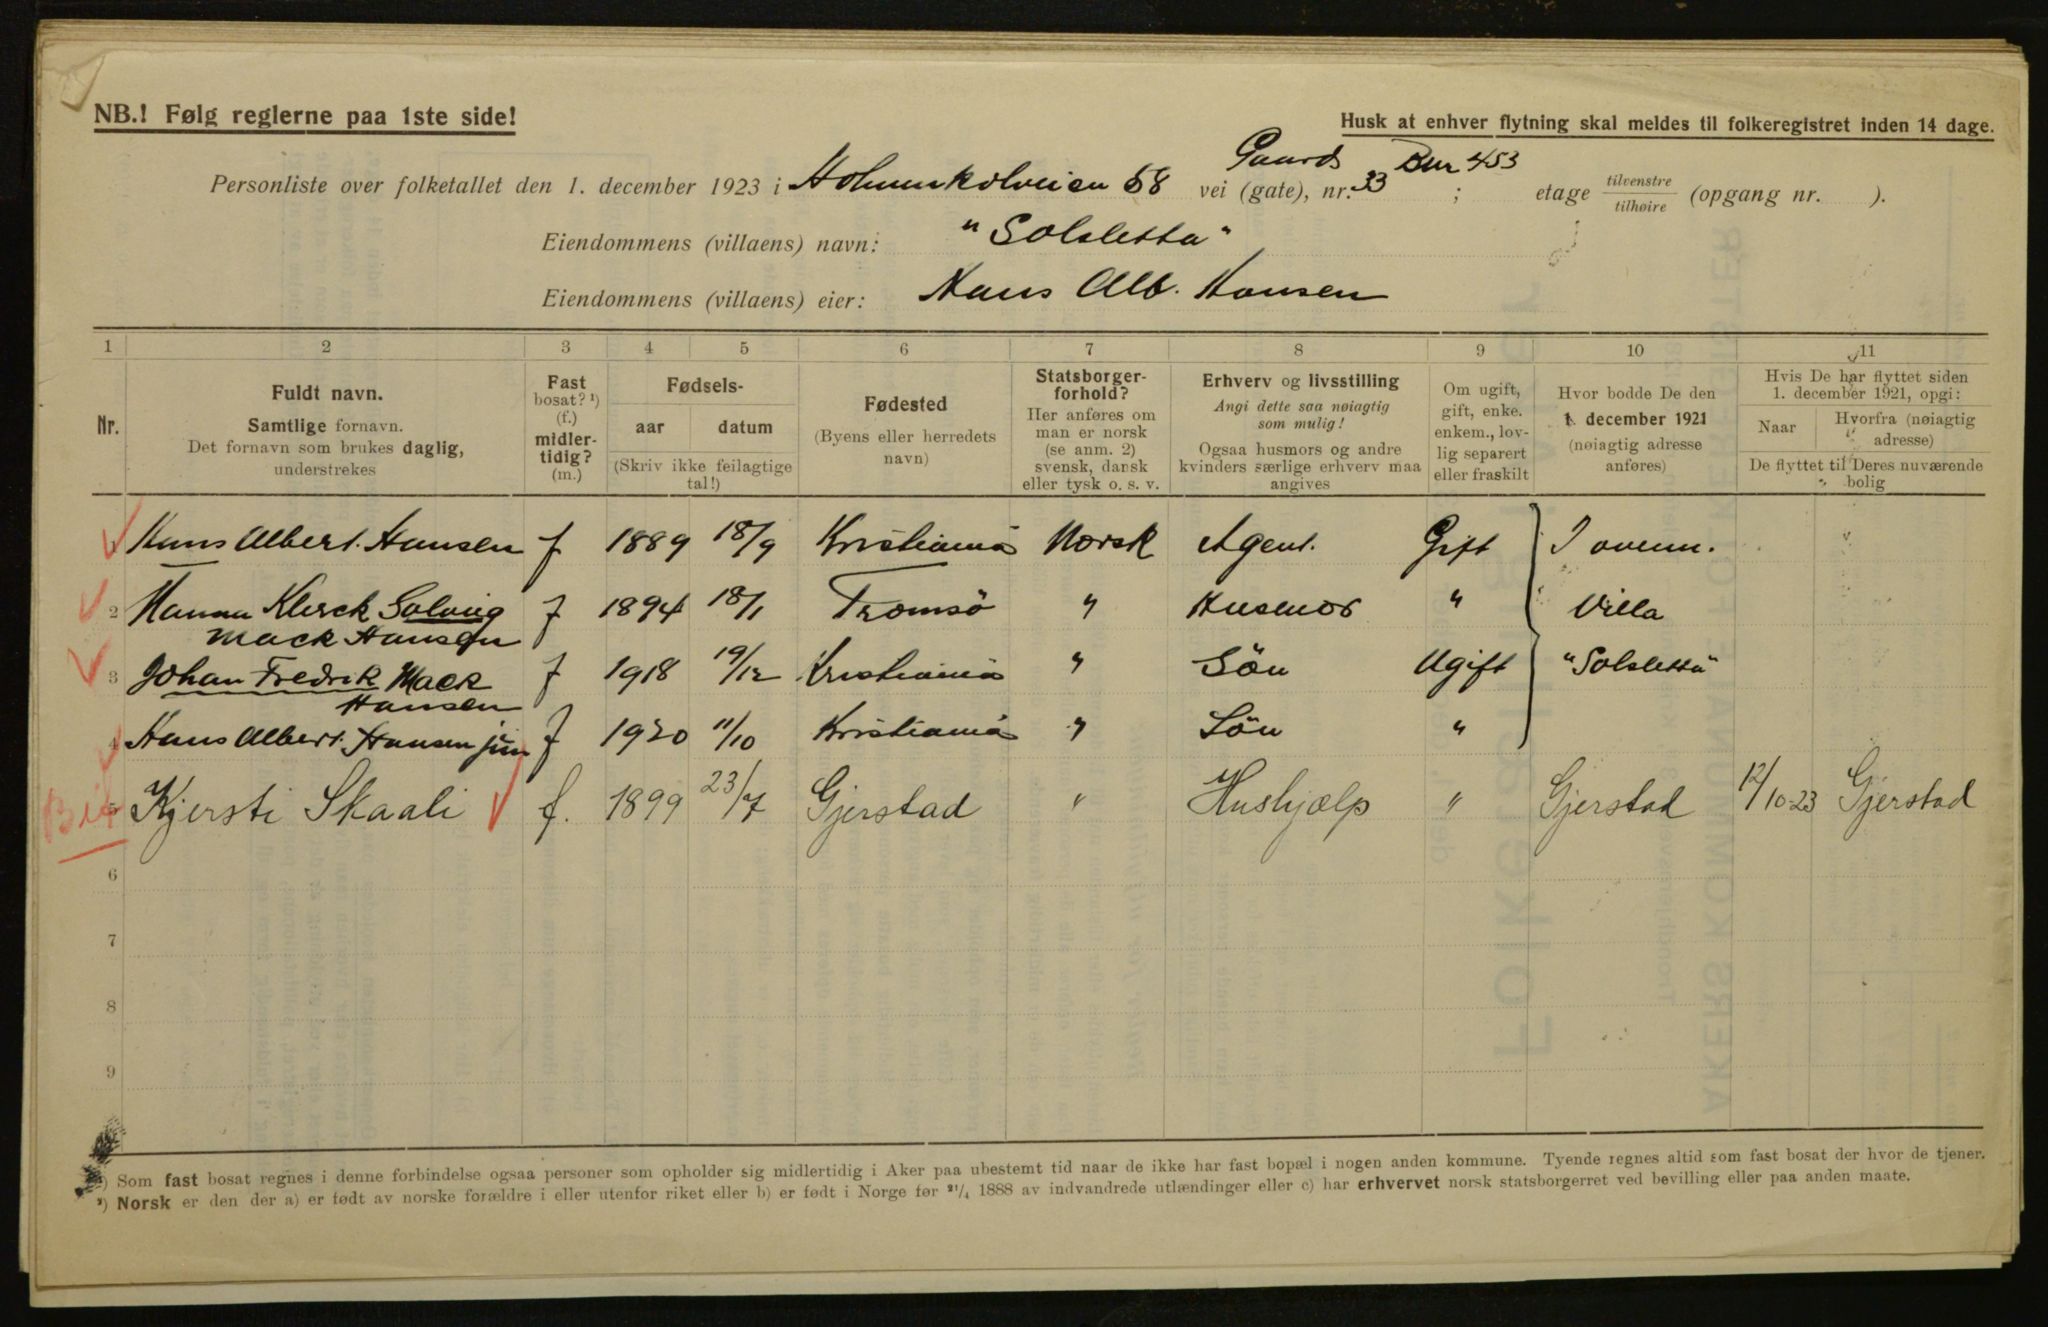 NB.! Følg reglerne paa 1ste side!
Husk at enhver flytning skal meldes til folkeregistret inden 14 dage.
Personliste over folketallet den 1. december 1923 i Holmenkolveien 68 vei (gate), Gaards nr. 33 Bnr 453 ; etage tilvenstre tilhøire (opgang nr. ).
Eiendommens (villaens) navn: "Solsletta"
Eiendommens (villaens) eier: Hans Alb. Hansen
1 2 3 4 5 6 7 8 9 10 11
Nr.
Fuldt navn.
Samtlige fornavn.
Det fornavn som brukes daglig,
understrekes
Fast
bosat? ¹)
(f.)
midler-
tidig?
(m.)
Fødsels-
aar datum
(Skriv ikke feilagtige
tal!)
Fødested
(Byens eller herredets
navn)
Statsborger-
forhold?
Her anføres om
man er norsk
(se anm. 2)
svensk, dansk
eller tysk o. s. v.
Erhverv og livsstilling
Angi dette saa nøiagtig
som mulig!
Ogsaa husmors og andre
kvinders særlige erhverv maa
angives
Om ugift,
gift, enke.
enkem., lov-
lig separert
eller fraskilt
Hvor bodde De den
1. december 1921
(nøiagtig adresse
anføres)
Hvis De har flyttet siden
1. december 1921, opgi:
Naar
Hvorfra (nøiagtig
adresse)
De flyttet til Deres nuværende
bolig
1 Hans Albert. Hansen f 1889 18/9 Kristiania Norsk Agent. Gift I ovenn.
2 Hanna Klerck Solveig f 1894 18/1 Tromsö " Husmor " Villa
Mack Hansen
3 Johan Fredrik Mack f 1918 19/12 Kristiania " Sön Ugift "Solsletta"
Hansen
4 Hans Albert. Hansen jun f 1920 11/10 Kristiania " Sön "
5 Kjersti Skaali f. 1899 23/7 Gjerstad " Hushjælp " Gjerstad 12/10-23 Gjerstad
6
7
8
9
¹) Som fast bosat regnes i denne forbindelse ogsaa personer som opholder sig midlertidig i Aker paa ubestemt tid naar de ikke har fast bopæl i nogen anden kommune. Tyende regnes altid som fast bosat der hvor de tjener.
²) Norsk er den der a) er født av norske forældre i eller utenfor riket eller b) er født i Norge før ²¹/₄ 1888 av indvandrede utlændinger eller c) har erhvervet norsk statsborgerret ved bevilling eller paa anden maate.